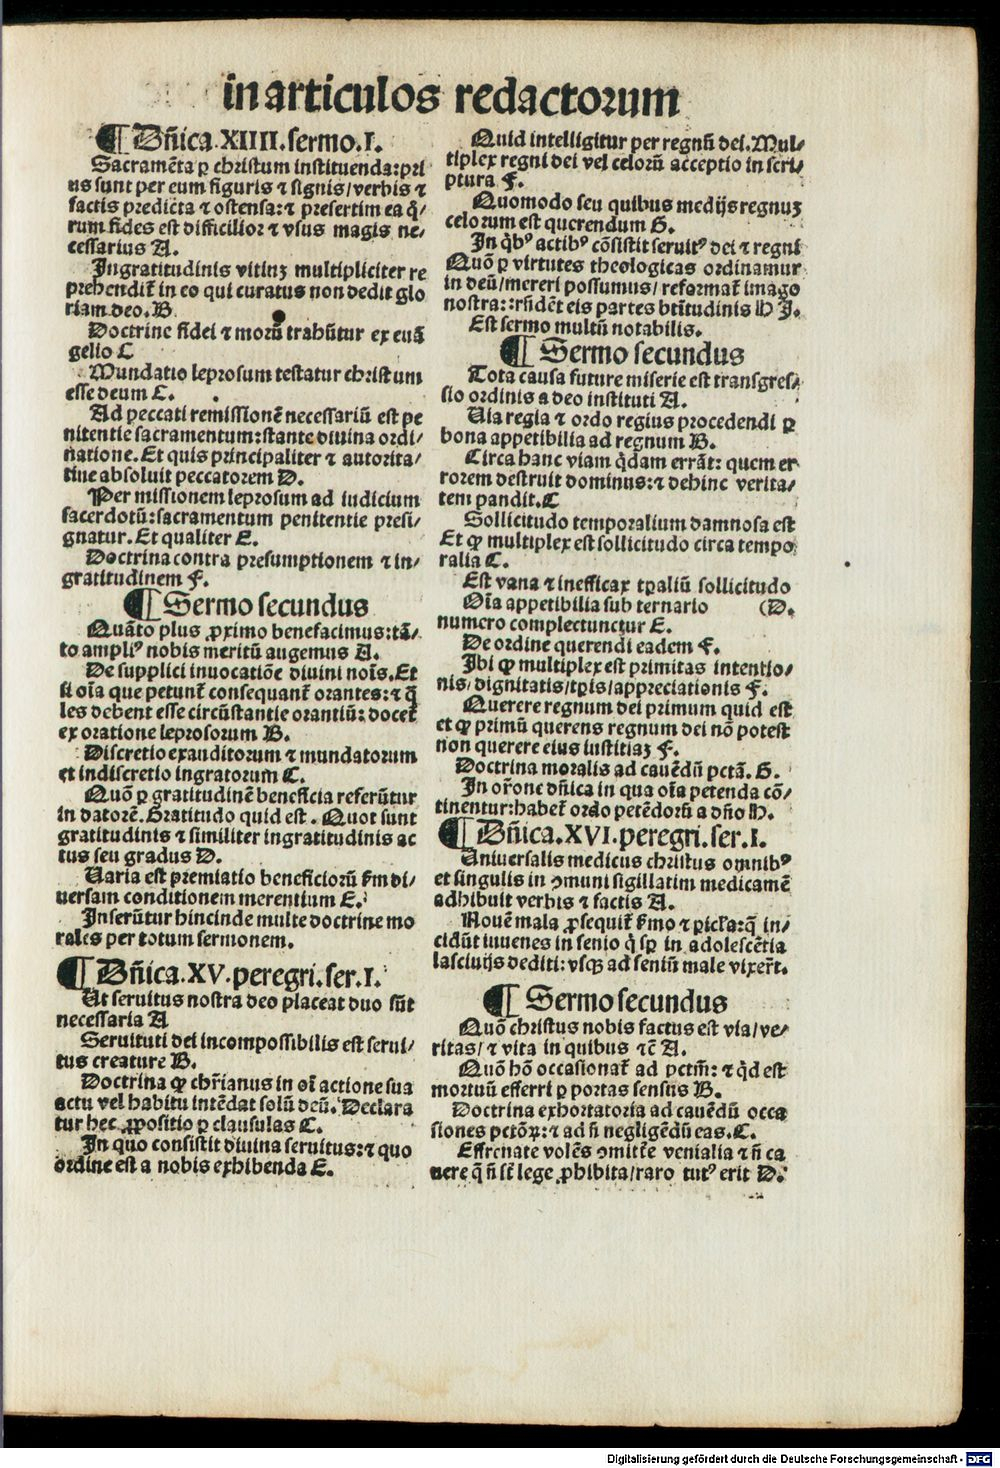 in articulos redactorum
¶ Dñica. XIIII. sermo. I.
Sacramēta ꝑ christum instituenda: pri
us sunt per eum figuris ⁊ signis/ verbis ⁊
factis predicta ⁊ ostensa: ⁊ presertim ea q̄/
rum fides est difficilior ⁊ vsus magis ne/
cessarius A.
Ingratitudinis vitiuꝫ multipliciter re
prehendit̄ in eo qui curatus non dedit glo
riam deo. B
Doctrine fidei ⁊ morū trahūtur ex euā
gelio C
Mundatio leprosum testatur christum
esse deum C.
Ad peccati remissionē necessariū est pe
nitentie sacramentum: stante diuina ordi/
natione. Et quis principaliter ⁊ autorita/
tiue absoluit peccatorem D.
Per missionem leprosum ad iudicium
sacerdotū: sacramentum penitentie presi/
gnatur. Et qualiter E.
Doctrina contra presumptionem ⁊ in/
gratitudinem F.
¶ Sermo secundus
Quāto plus ꝓximo benefacimus: tā/
to ampliꝰ nobis meritū augemus A.
De supplici inuocatiōe diuini noīs. Et
si oīa que petunt̄ consequant̄ orantes: ⁊ q̄
les debent esse circūstantie orantiū: docet̄
ex oratione leprosorum B.
Discretio exauditorum ⁊ mundatorum
et indiscretio ingratorum C.
Quō ꝑ gratitudinē beneficia referūtur
in datorē. Gratitudo quid est. Quot sunt
gratitudinis ⁊ similiter ingratitudinis ac
tus seu gradus D.
Uaria est premiatio beneficiorū ẜm di/
uersam conditionem merentium E.
Inserūtur hincinde multe doctrine mo
rales per totum sermonem.
¶ Dñica. XV. peregri. ser. I.
Ut seruitus nostra deo placeat duo sūt
necessaria A
Seruituti dei incompossibilis est serui/
tus creature B.
Doctrina ꝙ chr̄ianus in oī actione sua
actu vel habitu intēdat solū deū. Declara
tur hec ꝓpositio ꝑ clausulas C.
In quo consistit diuina seruitus: ⁊ quo
ordine est a nobis exhibenda E.
Quid intelligitur per regnū dei. Mul/
tiplex regni dei vel celorū acceptio in scri/
ptura F.
Quomodo seu quibus medijs regnuꝫ
celorum est querendum G.
In q̇bꝰ actibꝰ cōsistit seruitꝰ dei ⁊ regni
Quō ꝑ virtutes theologicas ordinamur
in deū/ mereri possumus/ reformat̄ imago
nostra: rn̄dēt eis partes btītudinis H I.
Est sermo multū notabilis.
¶ Sermo secundus
Tota causa future miserie est transgres/
sio ordinis a deo instituti A.
Uia regia ⁊ ordo regius procedendi ꝑ
bona appetibilia ad regnum B.
Circa hanc viam q̇dam errāt: quem er
rorem destruit dominus: ⁊ dehinc verita/
tem pandit. C
Sollicitudo temporalium damnosa est
Et ꝙ multiplex est sollicitudo circa tempo
ralia C.
Est vana ⁊ inefficax tꝑaliū sollicitudo
Oīa appetibilia sub ternario (D.
numero complectunctur E.
De ordine querendi eadem F.
Ibi ꝙ multiplex est primitas intentio/
nis/ dignitatis/ tꝑis/ appreciationis F.
Querere regnum dei primum quid est
et ꝙ primū querens regnum dei nō potest
non querere eius iustitiaꝫ F.
Doctrina moralis ad cauēdū pctā. G.
In or̄one dñica in qua oīa petenda cō/
tinentur: habet̄ ordo petēdorū a dño H.
¶ Dñica. XVI. peregri. ser. I.
Uniuersalis medicus christus omnibꝰ
et singulis in ꝯmuni sigillatim medicamē
adhibuit verbis ⁊ factis A.
Nouē mala ꝓsequit̄ ẜmo ⁊ picl̄a: q̄ in/
cidūt iuuenes in senio q̇ sꝑ in adolescētia
lasciuijs dediti: vsqꝫ ad seniū male vixer̄t.
¶ Sermo secundus
Quō christus nobis factus est via/ ve/
ritas/ ⁊ vita in quibus ⁊c̄ A.
Quō hō occasionat̄ ad pctm̄: ⁊ q̇d est
mortuū efferri ꝑ portas sensus B.
Doctrina exhortatoria ad cauēdū occa
siones pctōꝝ: ⁊ ad n̄ negligēdū eas. C.
Effrenate volēs ꝯmitt̄e venialia ⁊ n̄ ca
uere q̄ n̄ st̄ lege ꝓhibita/ raro tutꝰ erit D.
Digitalisierung gefördert durch die Deutsche Forschungsgemeinschaft - DFG